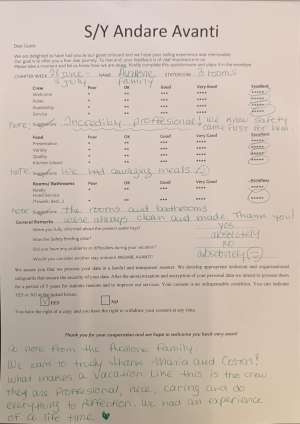 S/Y Andare Avanti
Dear Guest
We are delighted to have had you as our guest onboard and we hope your sailing experience was memorable.
Our goal is to offer you a five star journey. To that end, your feedback is of vital importance to us.
Please take a moment and let us know how we are doing. Kindly complete this questionnaire and place it in the envelope
CHARTER WEEK NAME Avalone family ITINERARY
Crew Poor OK Good Very Good Excellent
Welcome * ** *** **** *****
Polite * ** *** **** *****
* ** *** **** *****
Safety * ** *** **** *****
note: Suggestions Incredibly professional! We know safety
came first for them
Food Poor OK Good Very Good Excellent
Presentation * ** *** **** *****
Variety * ** *** **** *****
Quality * ** *** **** *****
* ** *** **** *****
note: Suggestions We had amazing meals
Rooms/ Bathrooms Poor OK Good Very Good Excellent
* ** *** **** *****
* ** *** **** *****
note: Suggestions The rooms and bathrooms
were always clean and made. Thank you!
General Remarks
Were you fully informed about the protect waterways? YES
Was the Safety briefing given? absolutely
Did you have any problems or difficulties during your vacation? NO
Would you consider another stay onboard ANDARE AVANTI? absolutely
We assure you that we process your data in a lawful and transparent manner. We develop appropriate technical and organizational
safeguards that ensure the security of your data. After the anonymization and encryption of your personal data we intend to process them
for a period of 5 years for statistic reasons and to improve our services. Your consent is an indispensable condition. You can indicate
YES or NO in the boxes below:
YES NO
You have the right of a copy and you have the right to withdraw your consent at any time.
Thank you for your cooperation and we hope to welcome you back very soon!
A note from the Avalone Family.
We want to truly thank Maria and Costas!
What makes a vacation like this is the crew
they are professional, nice, caring and do
everything to perfection. We had an experience
of a life time ♥